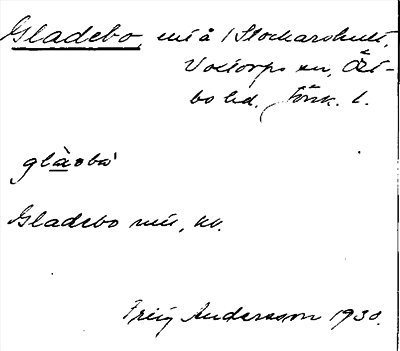 Gladebo, utj å /Stockarehult,
Voxtorps sn, Öst-
bo hd. Jönk. l.
glàobò
Gladebo mú, kv.
Andersson 1930.